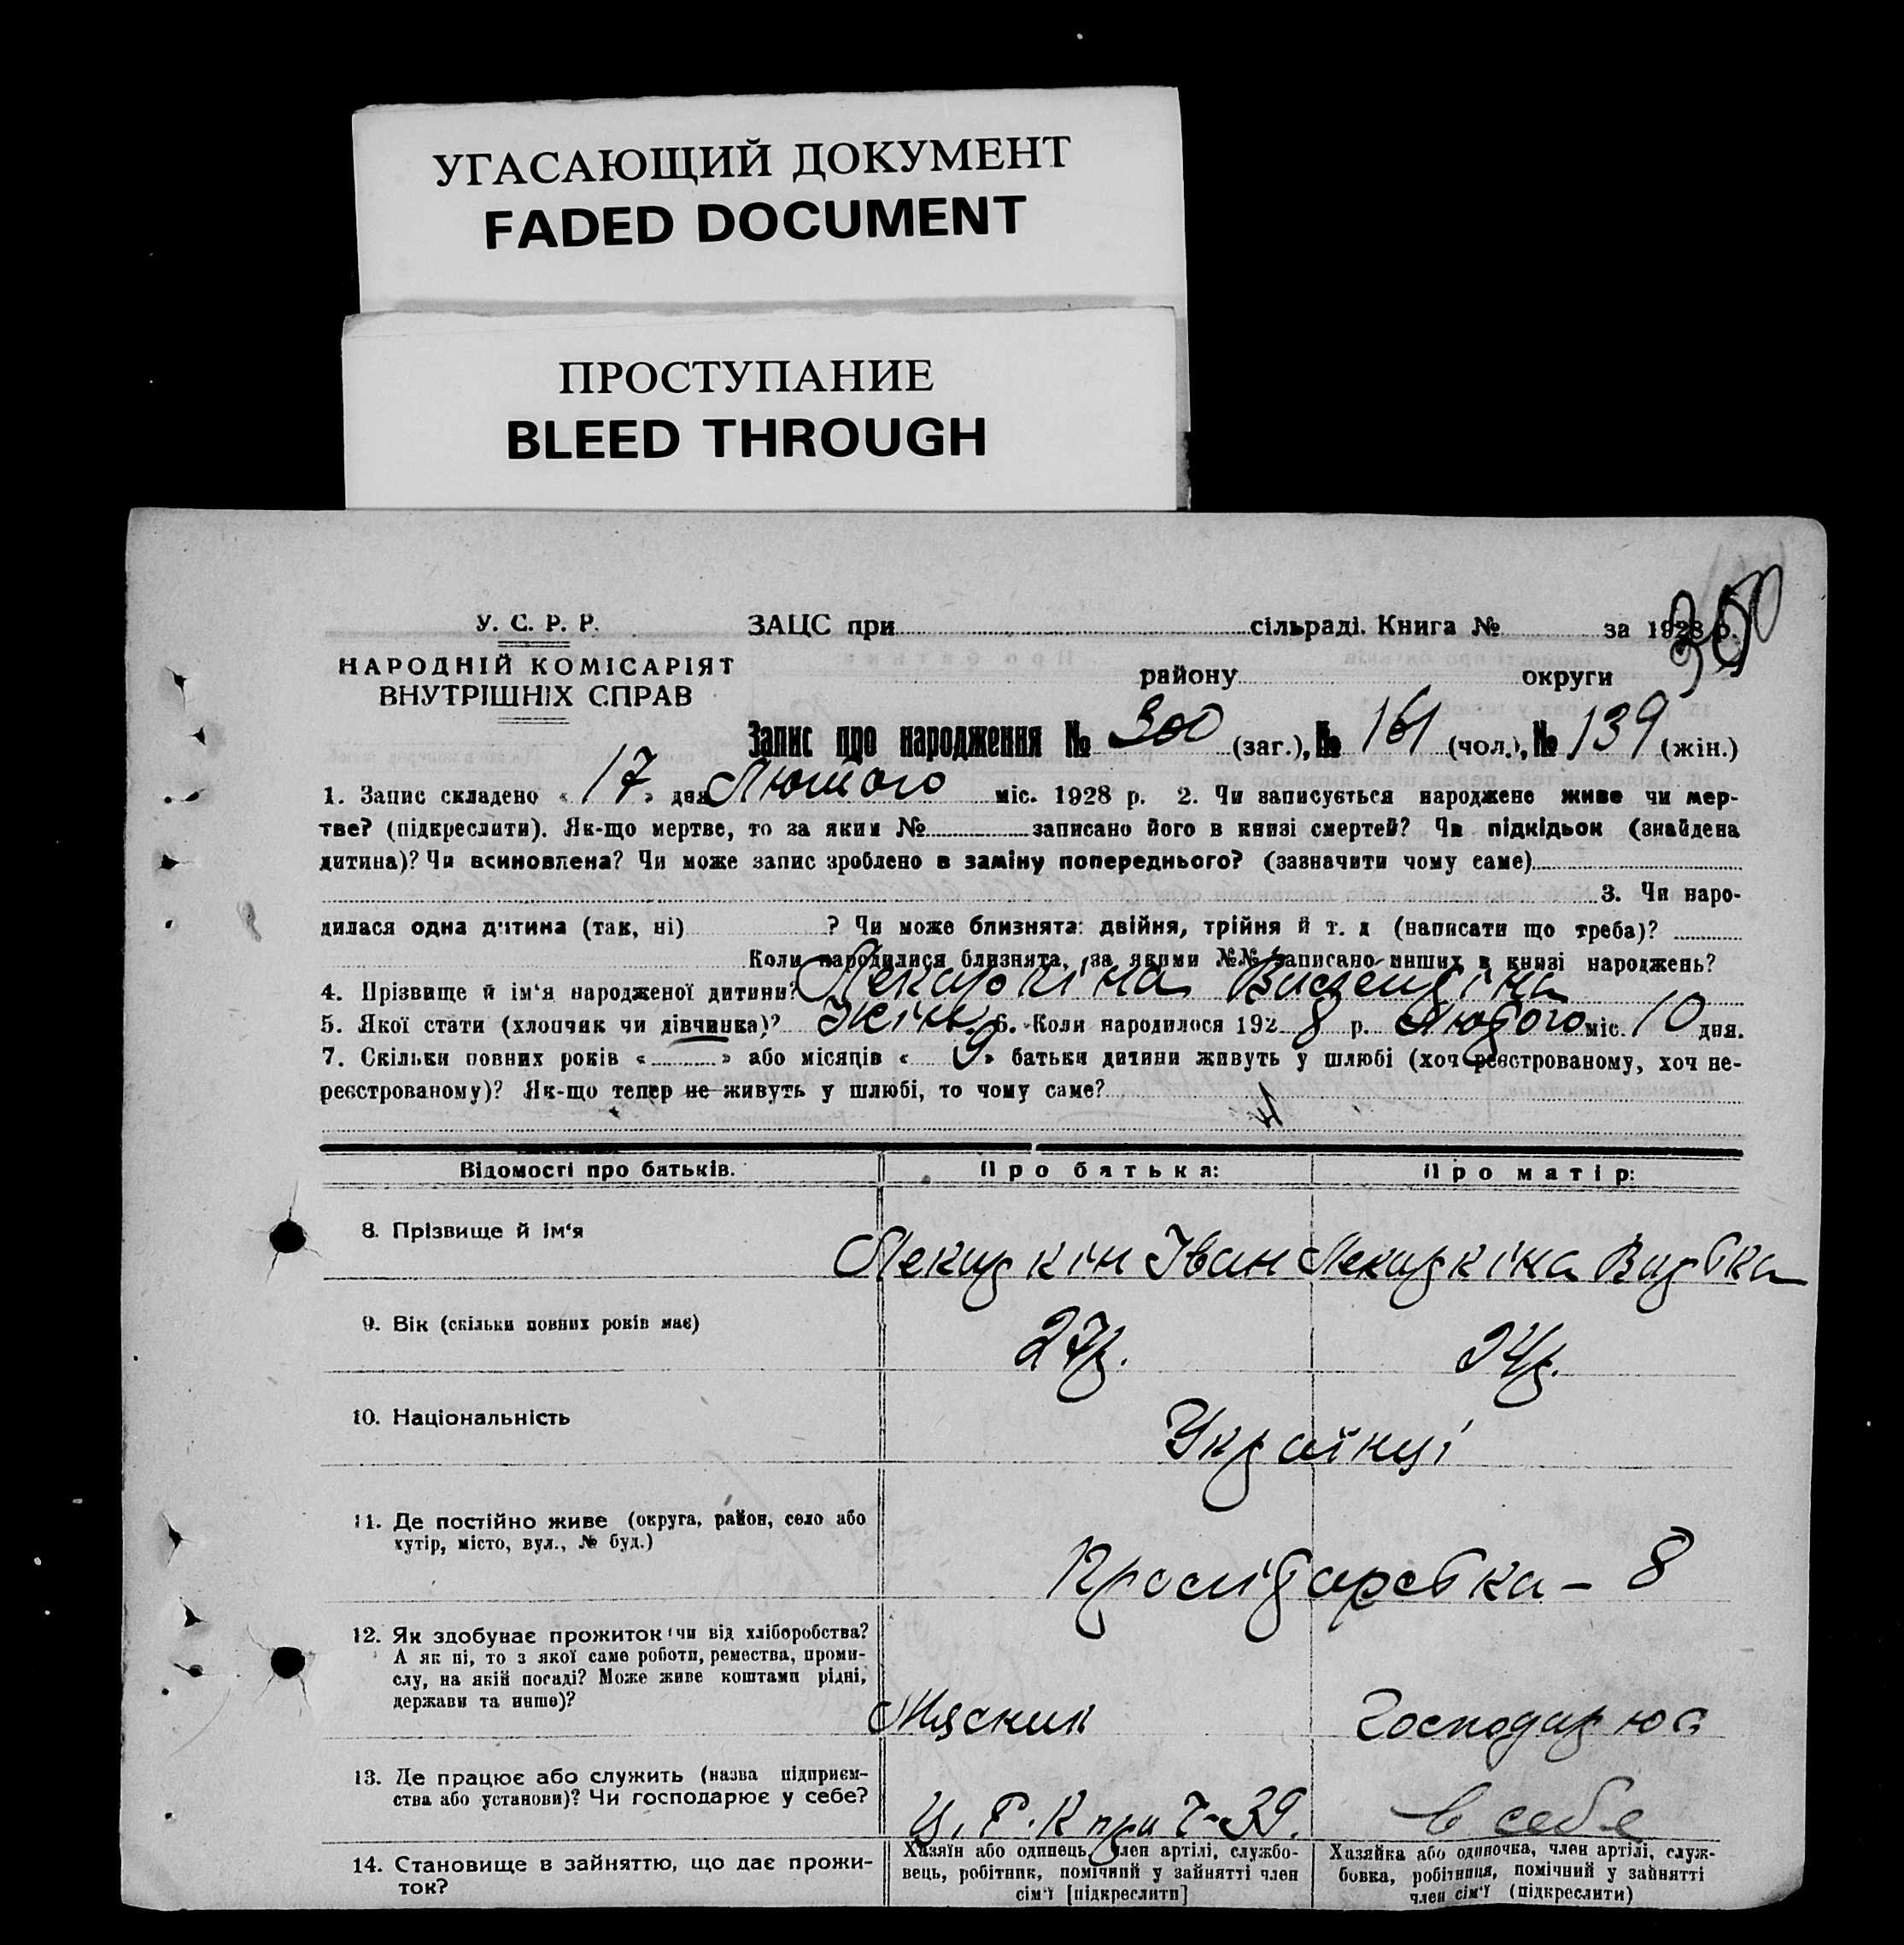 УГАСАЮЩИЙ ДОКУМЕНТ
FADED DOCUMENT
ПРОСТУПАНИЕ
BLEED THROUGH
У. С. Р. Р.
НАРОДНІЙ КОМІСАРІЯТ
ВНУТРІШНІХ СПРАВ
ЗАЦС при сільраді. Книга № за 1928 р.
району округи
Запис про народження № 300 (заг.), № 161 (чол.), № 139 (жін.)
1. Запис складено « 17 » дня Лютого міс. 1928 р. 2. Чи записується народжене живе чи мер-
тве? (підкреслити). Як-що мертве, то за яким № записано його в книзі смертей? Чи підкідьок (знайдена
дитина)? Чи всиновлена? Чи може запис зроблено в заміну попереднього? (зазначити чому саме)
3. Чи наро-
дилася одна дитина (так, ні) ? Чи може близнята: двійня, трійня й т. д (написати що треба)?
Коли народилися близнята, за якими №№ записано инших в книзі народжень?
4. Прізвище й ім'я народженої дитини?
5. Якої стати (хлопчик чи дівчинка)? Жін. 6. Коли народилося 1928 р. Лютого міс. 10 дня.
7. Скільки повних років « » або місяців « 9 » батьки дитини живуть у шлюбі (хоч реєстрованому, хоч не-
реєстрованому)? Як-що тепер не живуть у шлюбі, то чому саме?
Відомості про батьків. Про батька: Про матір:
8. Прізвище й ім'я Іван
9. Вік (скільки повних років має) 27р. 24р.
10. Національність Українці
11. Де постійно живе (округа, район, село або
хутір, місто, вул., № буд.)
– 8
12. Як здобуває прожиток (чи від хліборобства?
А як ні, то з якої саме роботи, ремества, проми-
слу, на якій посаді? Може живе коштами рідні,
держави та инше)?
Мясник Господарює
13. Де працює або служить (назва підприєм-
ства або установи)? Чи господарює у себе?
Ц. Р. К при 7-39. в себе
14. Становище в зайняттю, що дає прожи-
ток?
Хазяїн або одинець, член артілі, службо-
вець, робітник, помічний у зайнятті член
сім'ї [підкреслити]
Хазяйка або одиночка, член артілі, служ-
бовка, робітниця, помічний у зайнятті
член сім'ї (підкреслити)